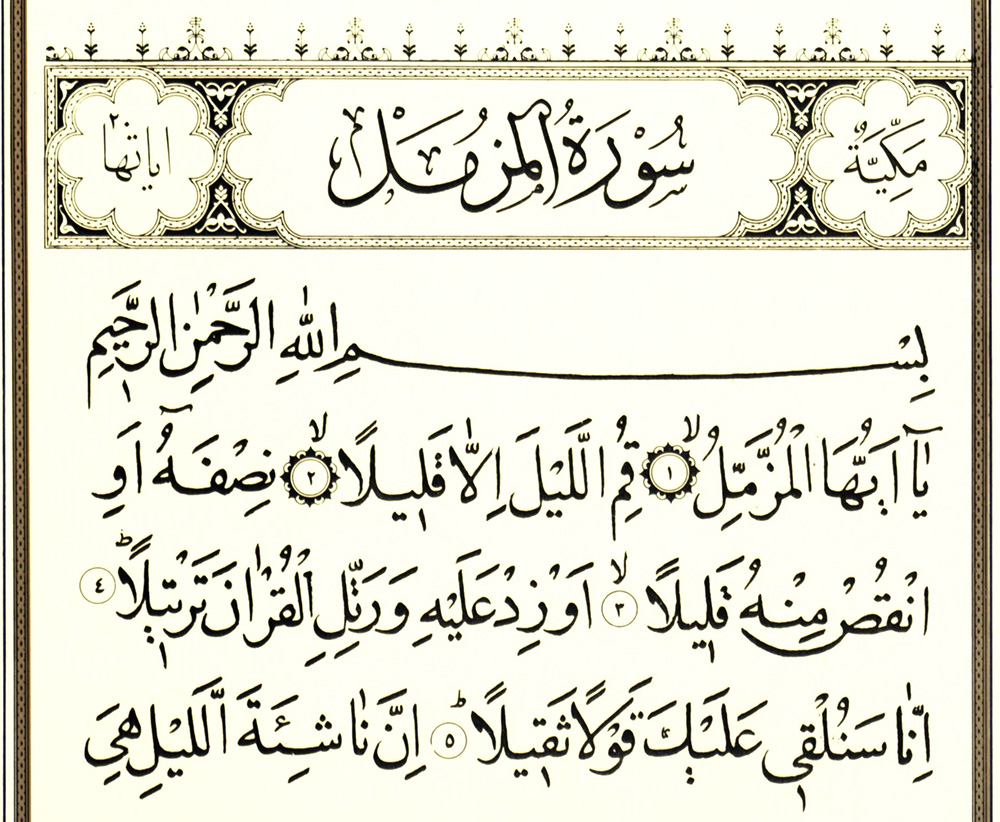 مَكِّيَّةٌ سُورَةُ الْمُزَّمِّلْ اٰيَاتُهَا ٢٠
بِسْمِ اللّٰهِ الرَّحْمٰنِ الرَّحِيمِ
يَٓا اَيُّهَا الْمُزَّمِّلُۙ ﴿١﴾ قُمِ الَّيْلَ اِلَّا قَل۪يلًاۙ ﴿٢﴾ نِصْفَهُٓ اَوِ
انْقُصْ مِنْهُ قَل۪يلًاۙ ﴿٣﴾ اَوْ زِدْ عَلَيْهِ وَرَتِّلِ الْقُرْاٰنَ تَرْت۪يلًاۜ ﴿٤﴾
اِنَّا سَنُلْق۪ي عَلَيْكَ قَوْلًا ثَق۪يلًاۜ ﴿٥﴾ اِنَّ نَاشِئَةَ الَّيْلِ هِيَ